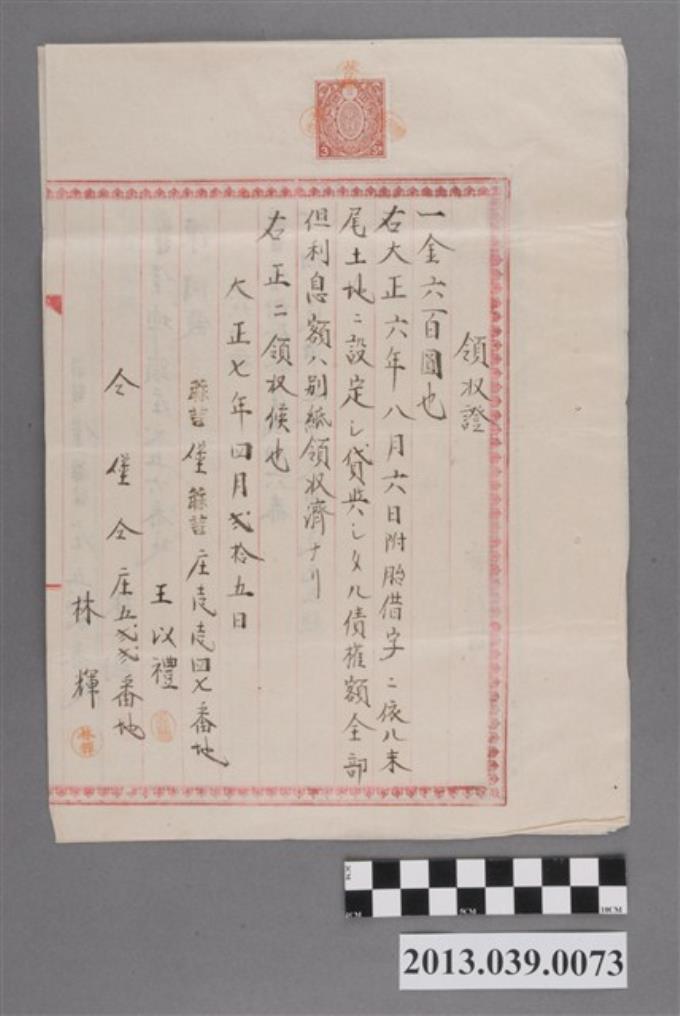 領收證
一金六百圓也
右大正六年八月六日附胎借字ニ依ル末
尾土地ニ設定シ貸與シタル債權額全部
但利息額ハ別紙領收濟ナリ
右正ニ領收候也
大正七年四月弐拾五日
堡庄壱壱四七番地
王以禮
仝堡仝庄五弐弐番地
林輝
林輝
3
0CM
5CM
10CM
2013.039.0073